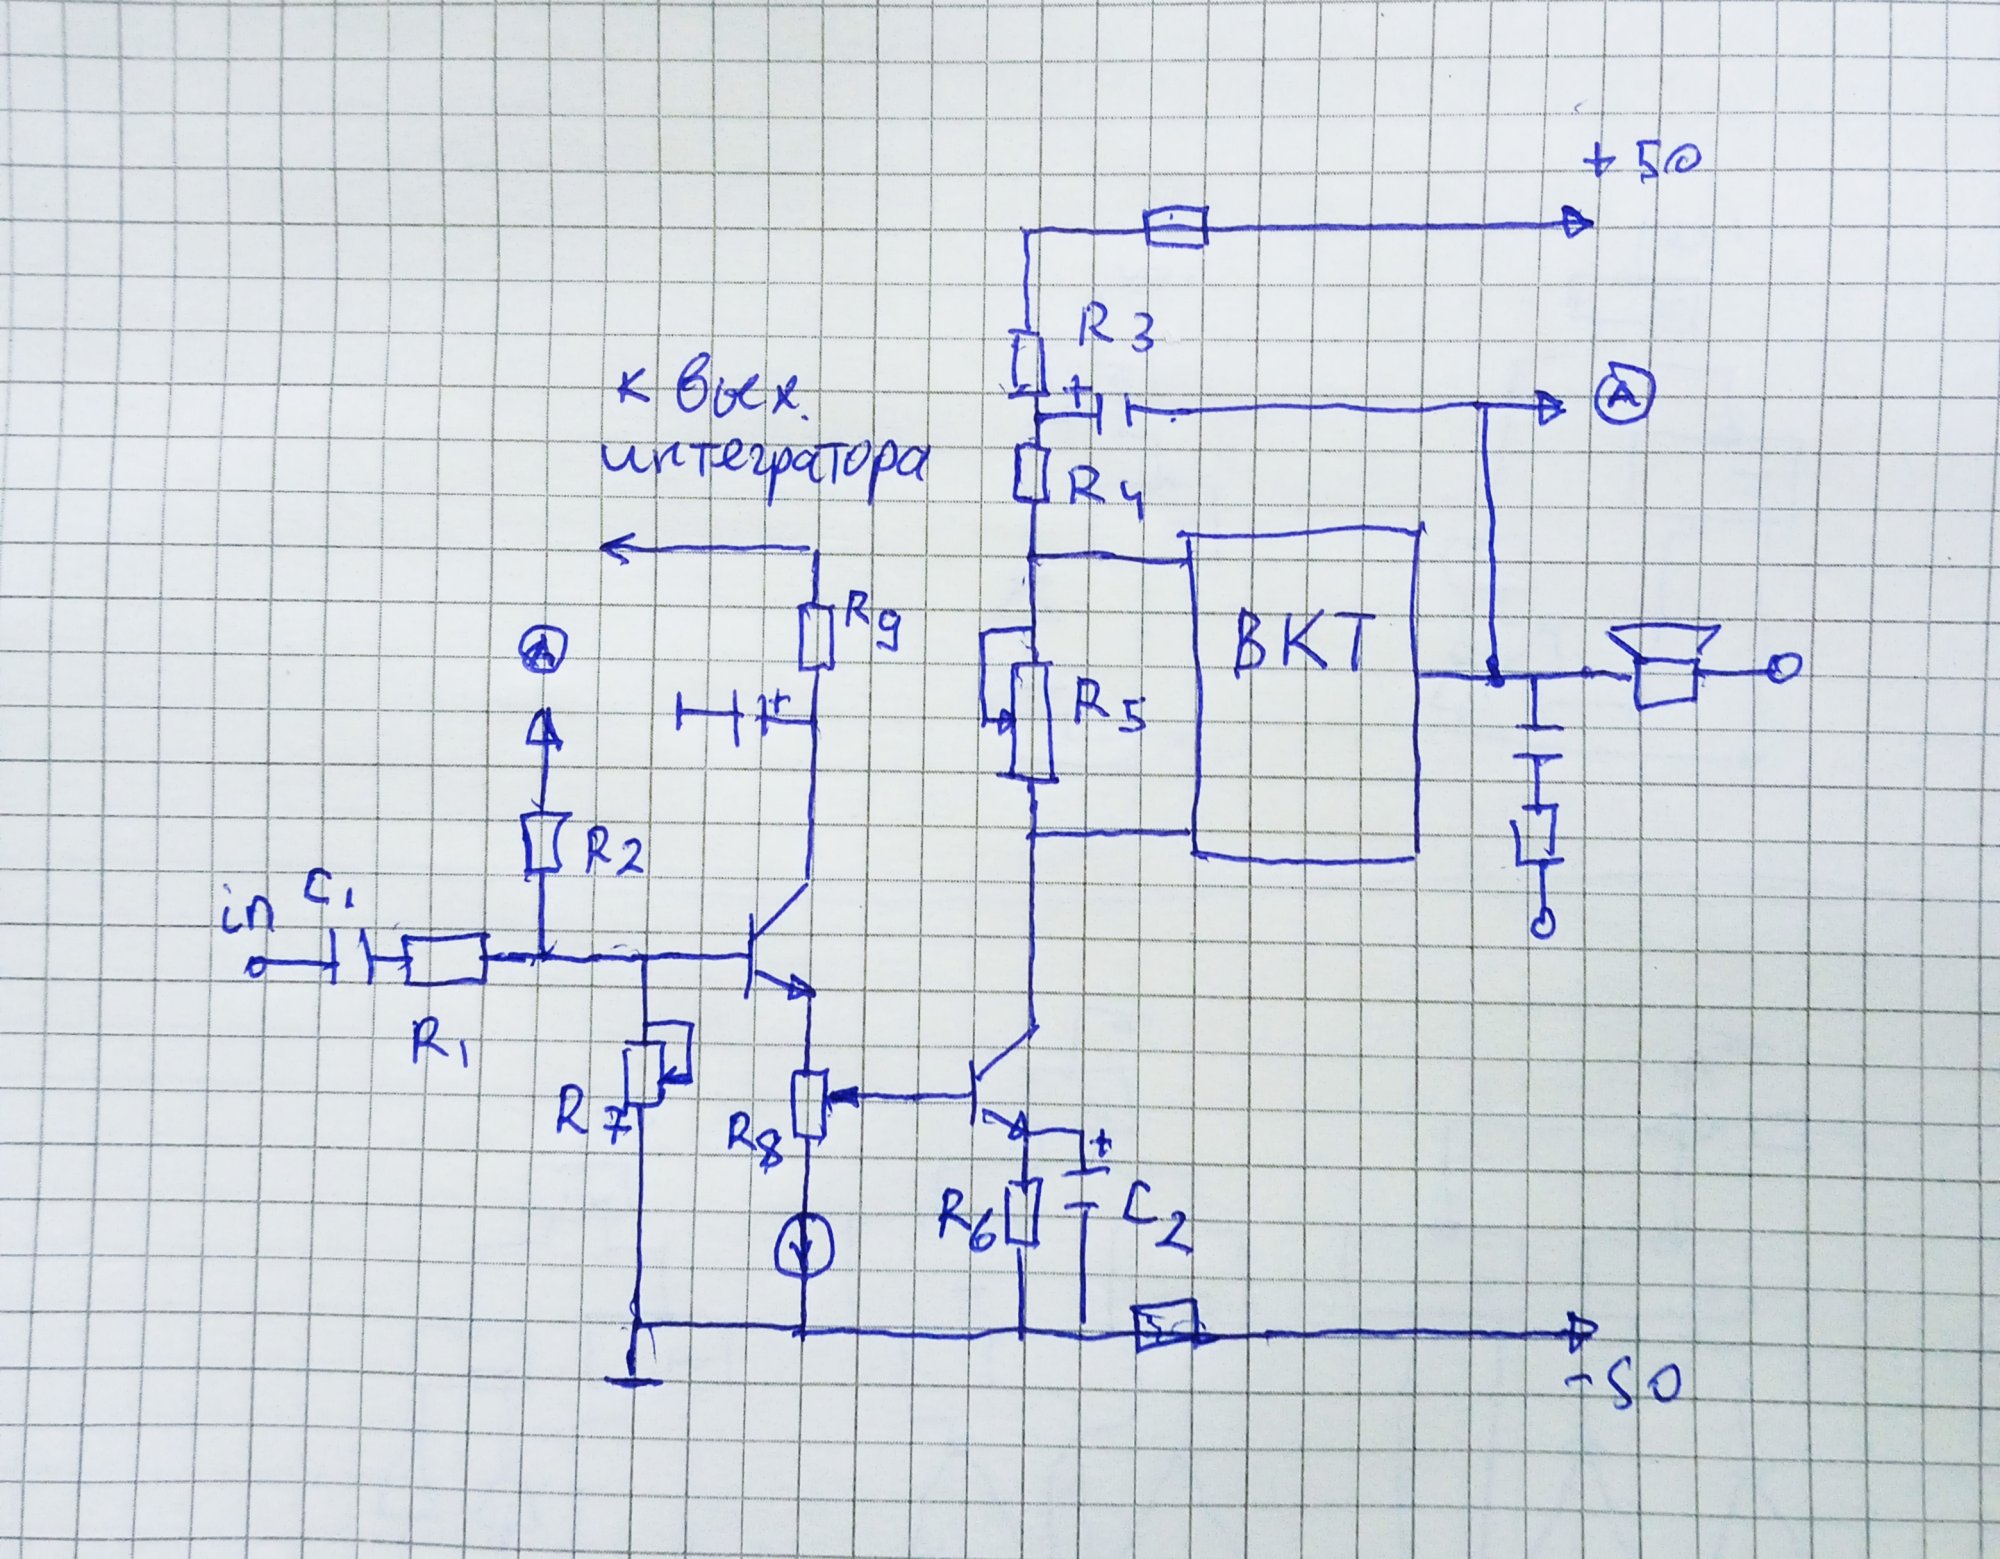 + 50
R3
+
A
к вых.
интегратора
R4
R9
A
+
ВКТ
R5
R2
in
C1
R1
R7
R8
+
R6
C2
-50